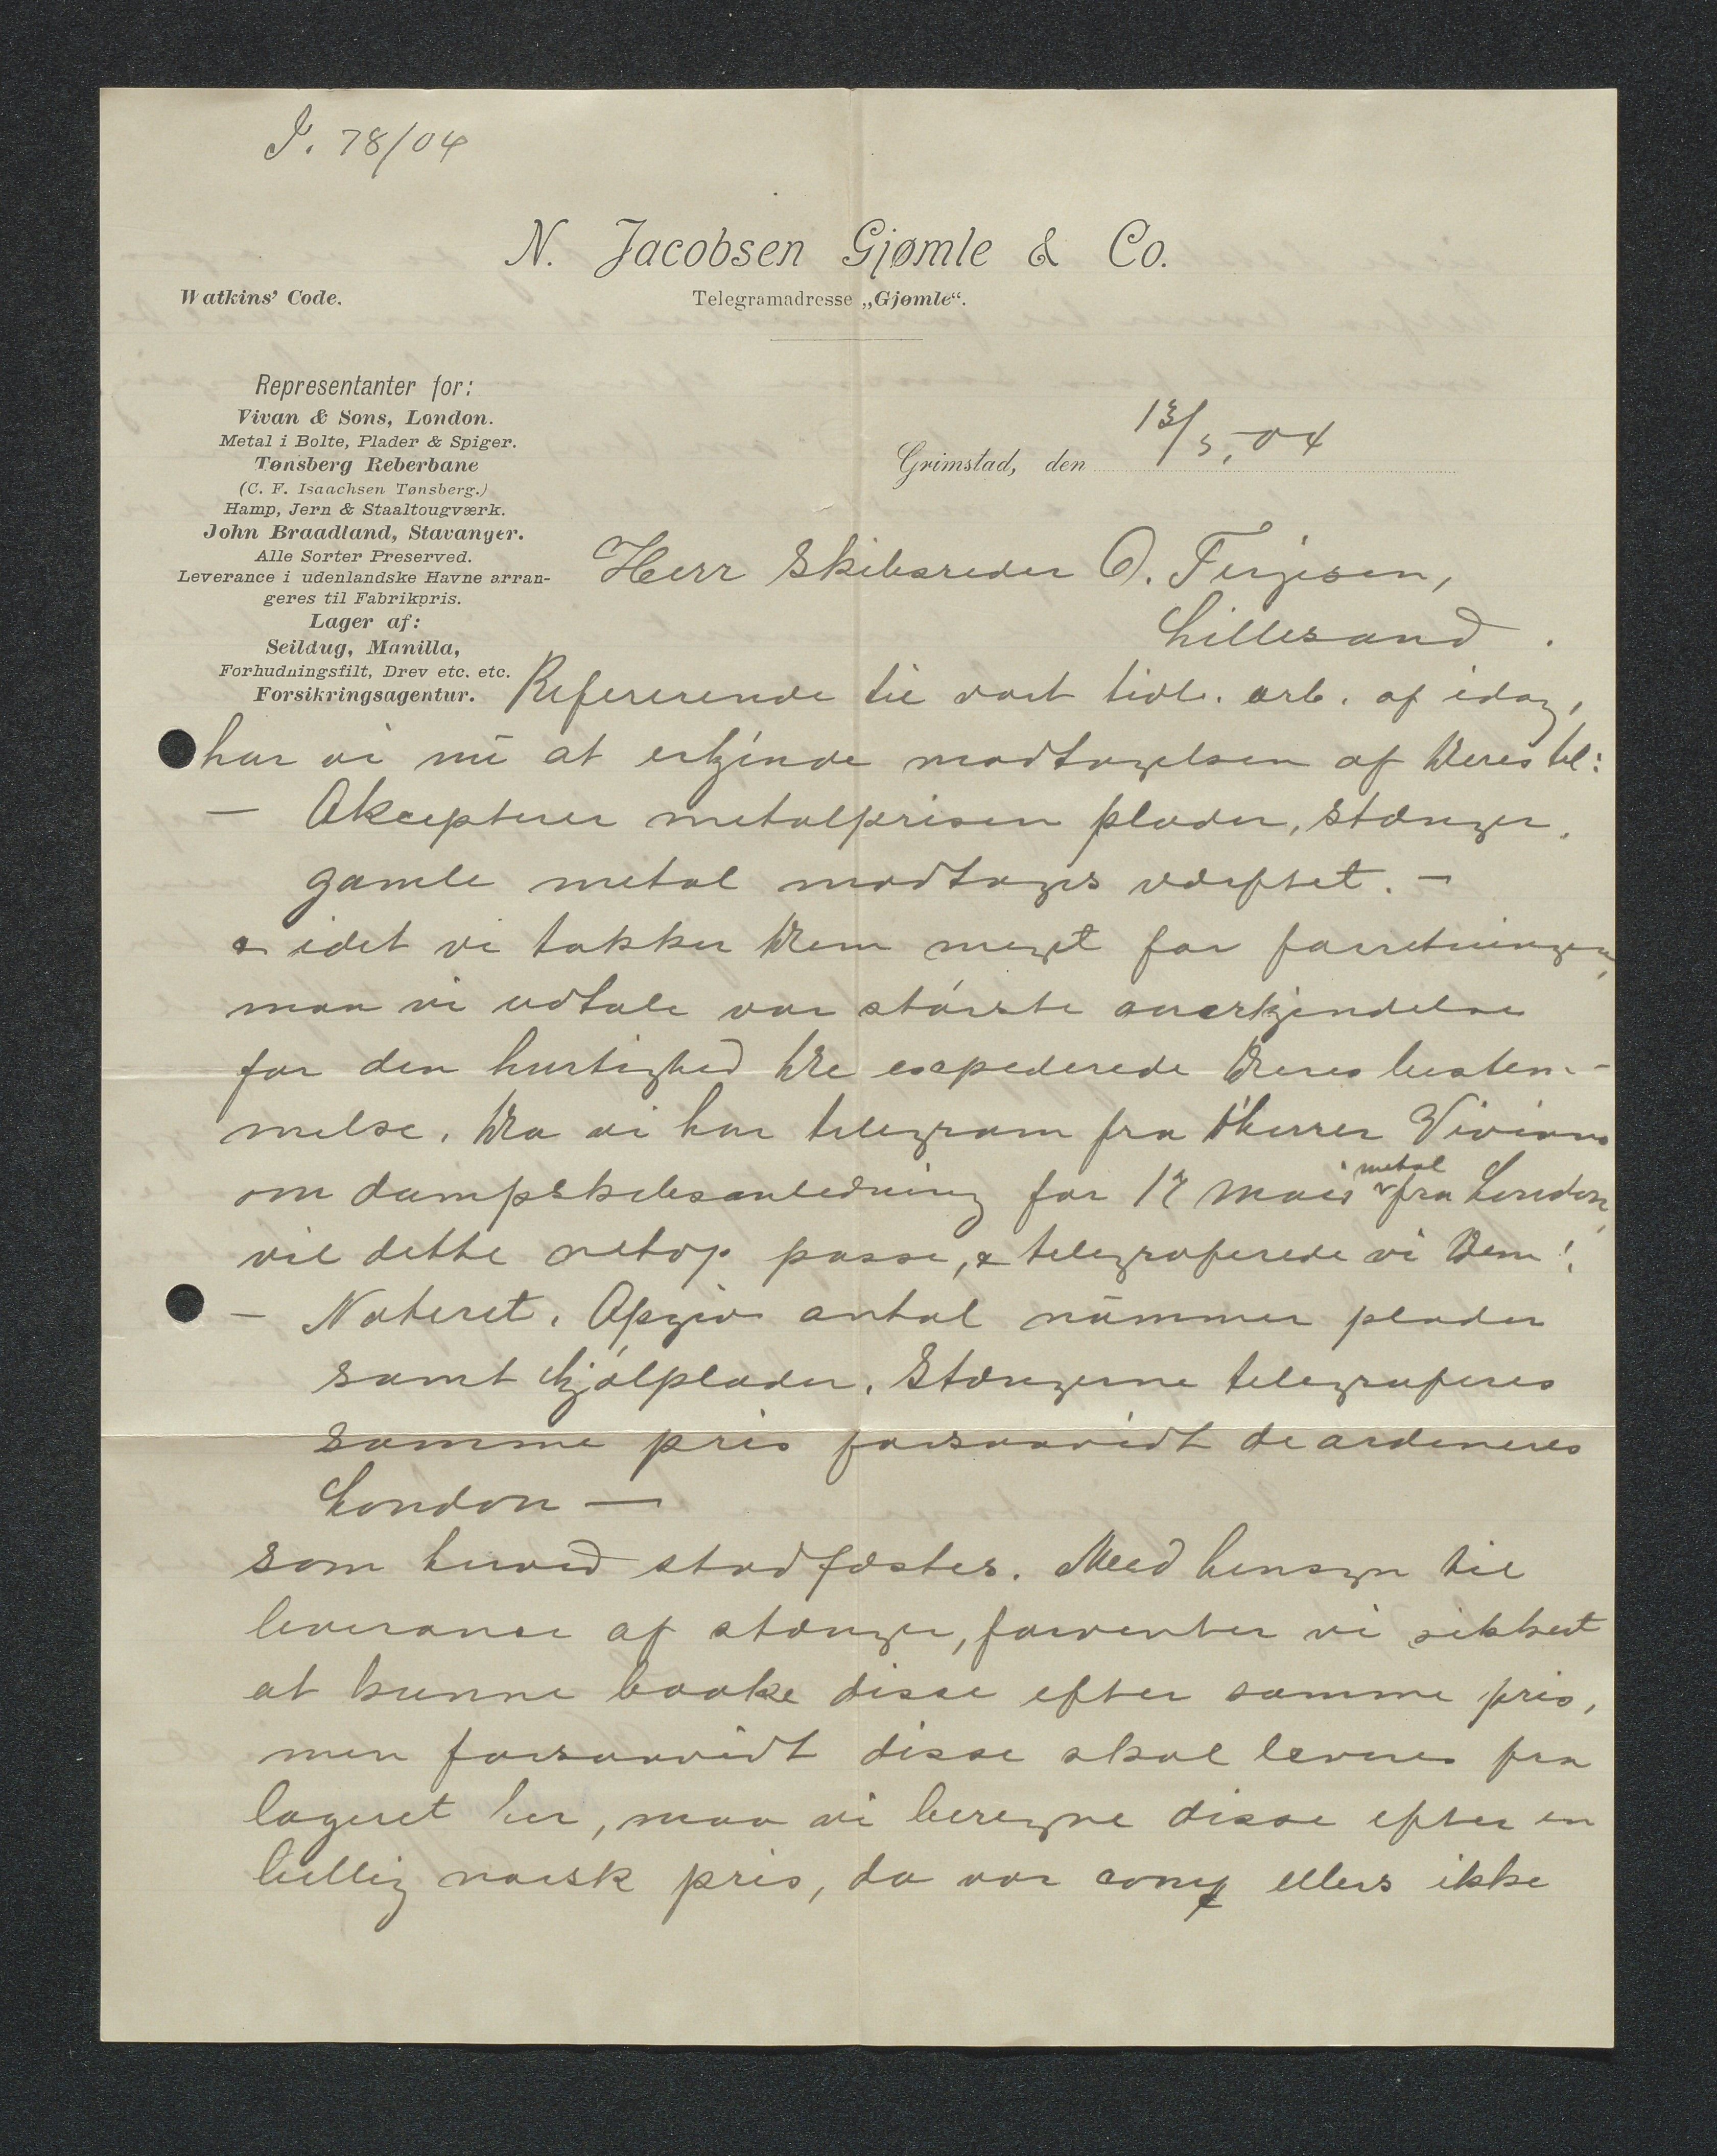 J. 78/04
N. Jacobsen Gjømle & Co.
Watkins' Code.
Telegramadresse „Gjømle“.
Representanter for:
Vivan & Sons, London.
Metal i Bolte, Plader & Spiger.
Tønsberg Reberbane
(C. F. Isaachsen Tønsberg.)
Hamp, Jern & Staaltougværk.
John Braadland, Stavanger.
Alle Sorter Preserved.
Leverance i udenlandske Havne arran-
geres til Fabrikpris.
Lager af:
Seildug, Manilla,
Forhudningsfilt, Drev etc. etc.
Forsikringsagentur.
Grimstad, den 13/5.-04
Herr Skibsreder O. Terjesen,
Lillesand.
Refererende til vort tidl. arb. af idag,
har vi nu at erkjende modtagelsen af Deres tel:
— Akcepterer metalprisen plader, stænger,
gamle metal modtages værftet. —
& idet vi takker Dem meget for forretningen,
maa vi udtale vor største anerkjendelse
for den hurtighed De expederede Deres bestem-
melse. Da vi har telegram fra Herrer Vivians
om dampskibsanledning for 17 mai metal fra London,
vil dette netop passe, & telegraferede vi Dem:
— Noteret. Opgiv antal nummer plader
samt kjølplader. Stængerne telegraferes
samme pris forsaavidt de ordineres
London —
som herved stadfæstes. Med hensyn til
leverance af stænger, forventer vi sikkert
at kunne booke disse efter samme pris,
men forsaavidt disse skal leveres fra
lageret her, maa vi beregne disse efter en
billig norsk pris, da vor ellers ikke